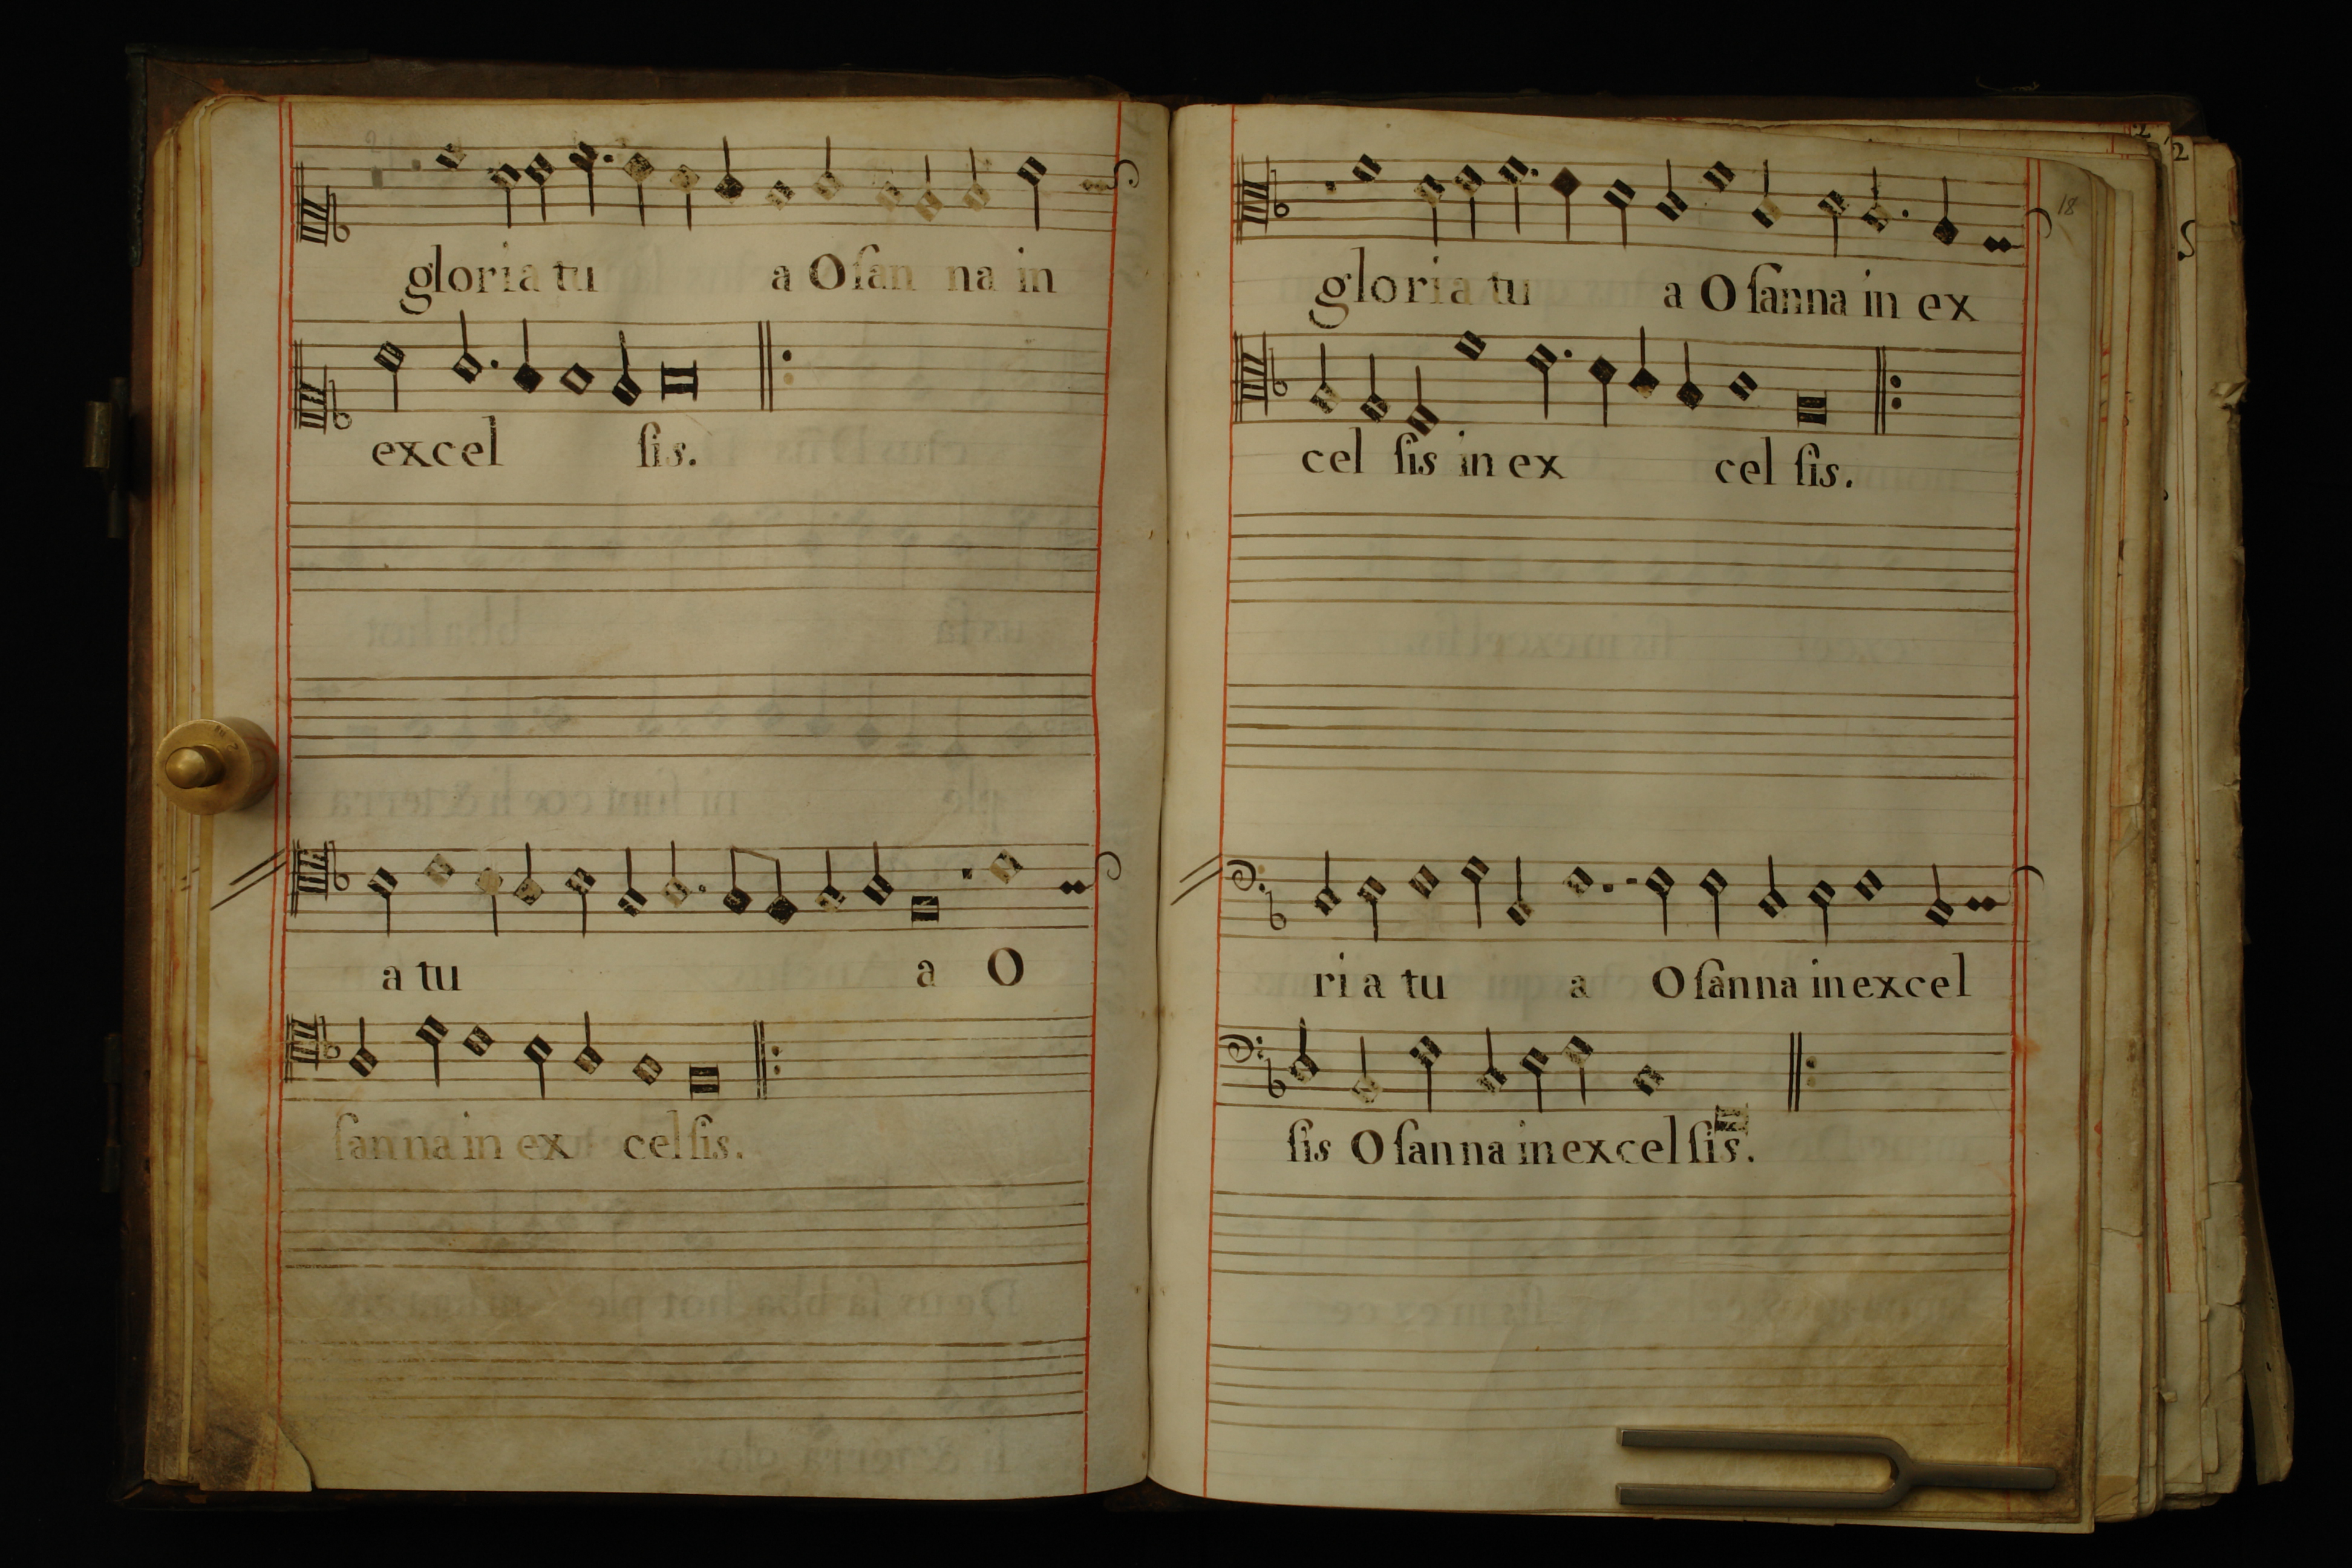 gloria tu a Oſan na in
excel ſis.
a tu a O
ſanna in ex celſis.
18
gloria tu a O ſanna in ex
cel ſis in ex cel ſis.
ri a tu a O ſanna in excel
ſis O ſanna in excelſis.
2
2